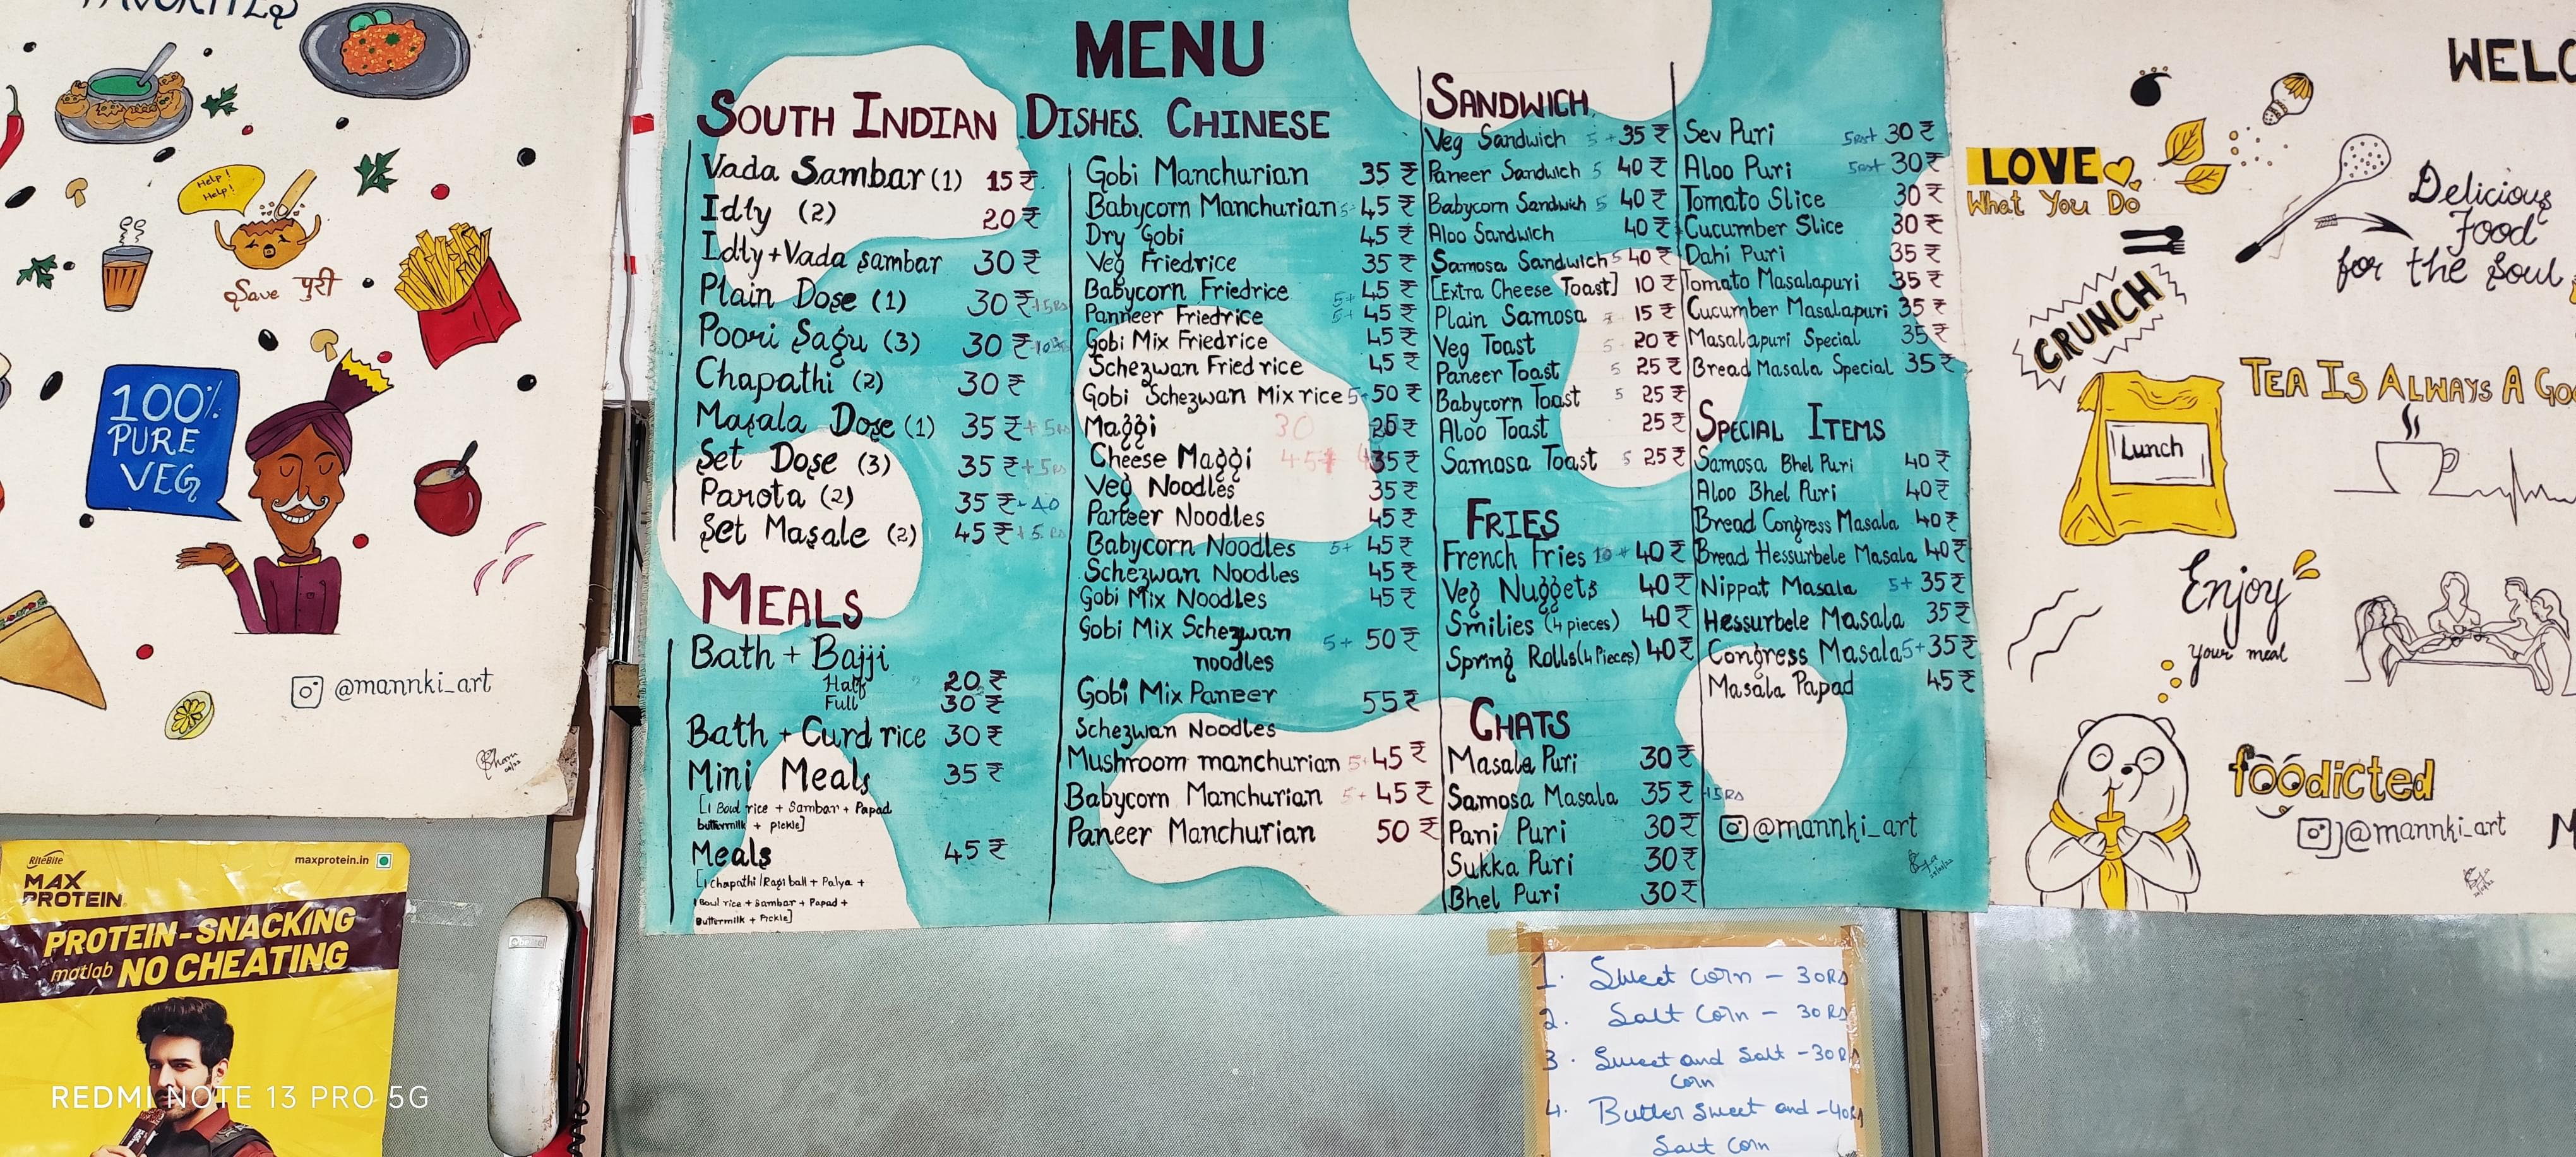 FAVORITES
Help!
Help!
Save पुरी
100%
PURE
VEG
@mannki_art
RiteBite
MAX
PROTEIN
maxprotein.in
PROTEIN-SNACKING
matlab NO CHEATING
REDMI NOTE 13 PRO 5G
MENU
SOUTH INDIAN DISHES.
Vada Sambar (1) 15₹
Idly (2) 20₹
Idly+Vada sambar 30₹
Plain Dose (1) 30₹+5Rs
Poori Sagu (3) 30₹
Chapathi (2) 30₹
Masala Dose (1) 35₹+5Rs
Set Dose (3) 35₹+5Rs
Parota (2) 35₹-40
Set Masale (2) 45₹+5Rs
MEALS
Bath + Bajji
Half 20₹
Full 30₹
Bath + Curd rice 30₹
Mini Meals 35₹
[1 Bowl rice + Sambar + Papad
buttermilk + pickle]
Meals 45₹
[1 Chapathi/Ragi ball + Palya +
1 Bowl rice + Sambar + Papad +
Buttermilk + Pickle]
CHINESE
Gobi Manchurian 35₹
Babycorn Manchurian 5+ 45₹
Dry Gobi 45₹
Veg Friedrice 35₹
Babycorn Friedrice 5+ 45₹
Panneer Friedrice 5+ 45₹
Gobi Mix Friedrice 45₹
Schezwan Fried rice 45₹
Gobi Schezwan Mix rice 5+ 50₹
Maggi 30 ₹
Cheese Maggi 45₹ 35₹
Veg Noodles 35₹
Paneer Noodles 45₹
Babycorn Noodles 5+ 45₹
Schezwan Noodles 45₹
Gobi Mix Noodles 45₹
Gobi Mix Schezwan 5+ 50₹
noodles
Gobi Mix Paneer 55₹
Schezwan Noodles
Mushroom manchurian 5+ 45₹
Babycorn Manchurian 5+ 45₹
Paneer Manchurian 50₹
SANDWICH
Veg Sandwich 5+ 35₹
Paneer Sandwich 5 40₹
Babycorn Sandwich 5 40₹
Aloo Sandwich 40₹
Samosa Sandwich 5 40₹
[Extra Cheese Toast] 10₹
Plain Samosa 15₹
Veg Toast 5 20₹
Paneer Toast 5 25₹
Babycorn Toast 5 25₹
Aloo Toast 25₹
Samosa Toast 5 25₹
FRIES
French Fries 10+ 40₹
Veg Nuggets 40₹
Smilies (4 pieces) 40₹
Spring Rolls (4 Pieces) 40₹
CHATS
Masala Puri 30₹
Samosa Masala 35₹ +5Rs
Pani Puri 30₹
Sukka Puri 30₹
Bhel Puri 30₹
Sev Puri 5Rs+ 30₹
Aloo Puri 5Rs+ 30₹
Tomato Slice 30₹
Cucumber Slice 30₹
Dahi Puri 35₹
Tomato Masalapuri 35₹
Cucumber Masalapuri 35₹
Masalapuri Special 35₹
Bread Masala Special 35₹
SPECIAL ITEMS
Samosa Bhel Puri 40₹
Aloo Bhel Puri 40₹
Bread Congress Masala 40₹
Bread Hessurbele Masala 40₹
Nippat Masala 5+ 35₹
Hessurbele Masala 35₹
Congress Masala 5+ 35₹
Masala Papad 45₹
@mannki_art
1. Sweet corn - 30RS
2. Salt Corn - 30RS
3. Sweet and Salt - 30RS
Corn
4. Butter Sweet and - 40RS
Salt Corn
WELC
LOVE
What You Do
Delicious
Food
for the Soul
CRUNCH
TEA IS ALWAYS A GOO
Lunch
Enjoy
your meal
foodicted
@mannki_art